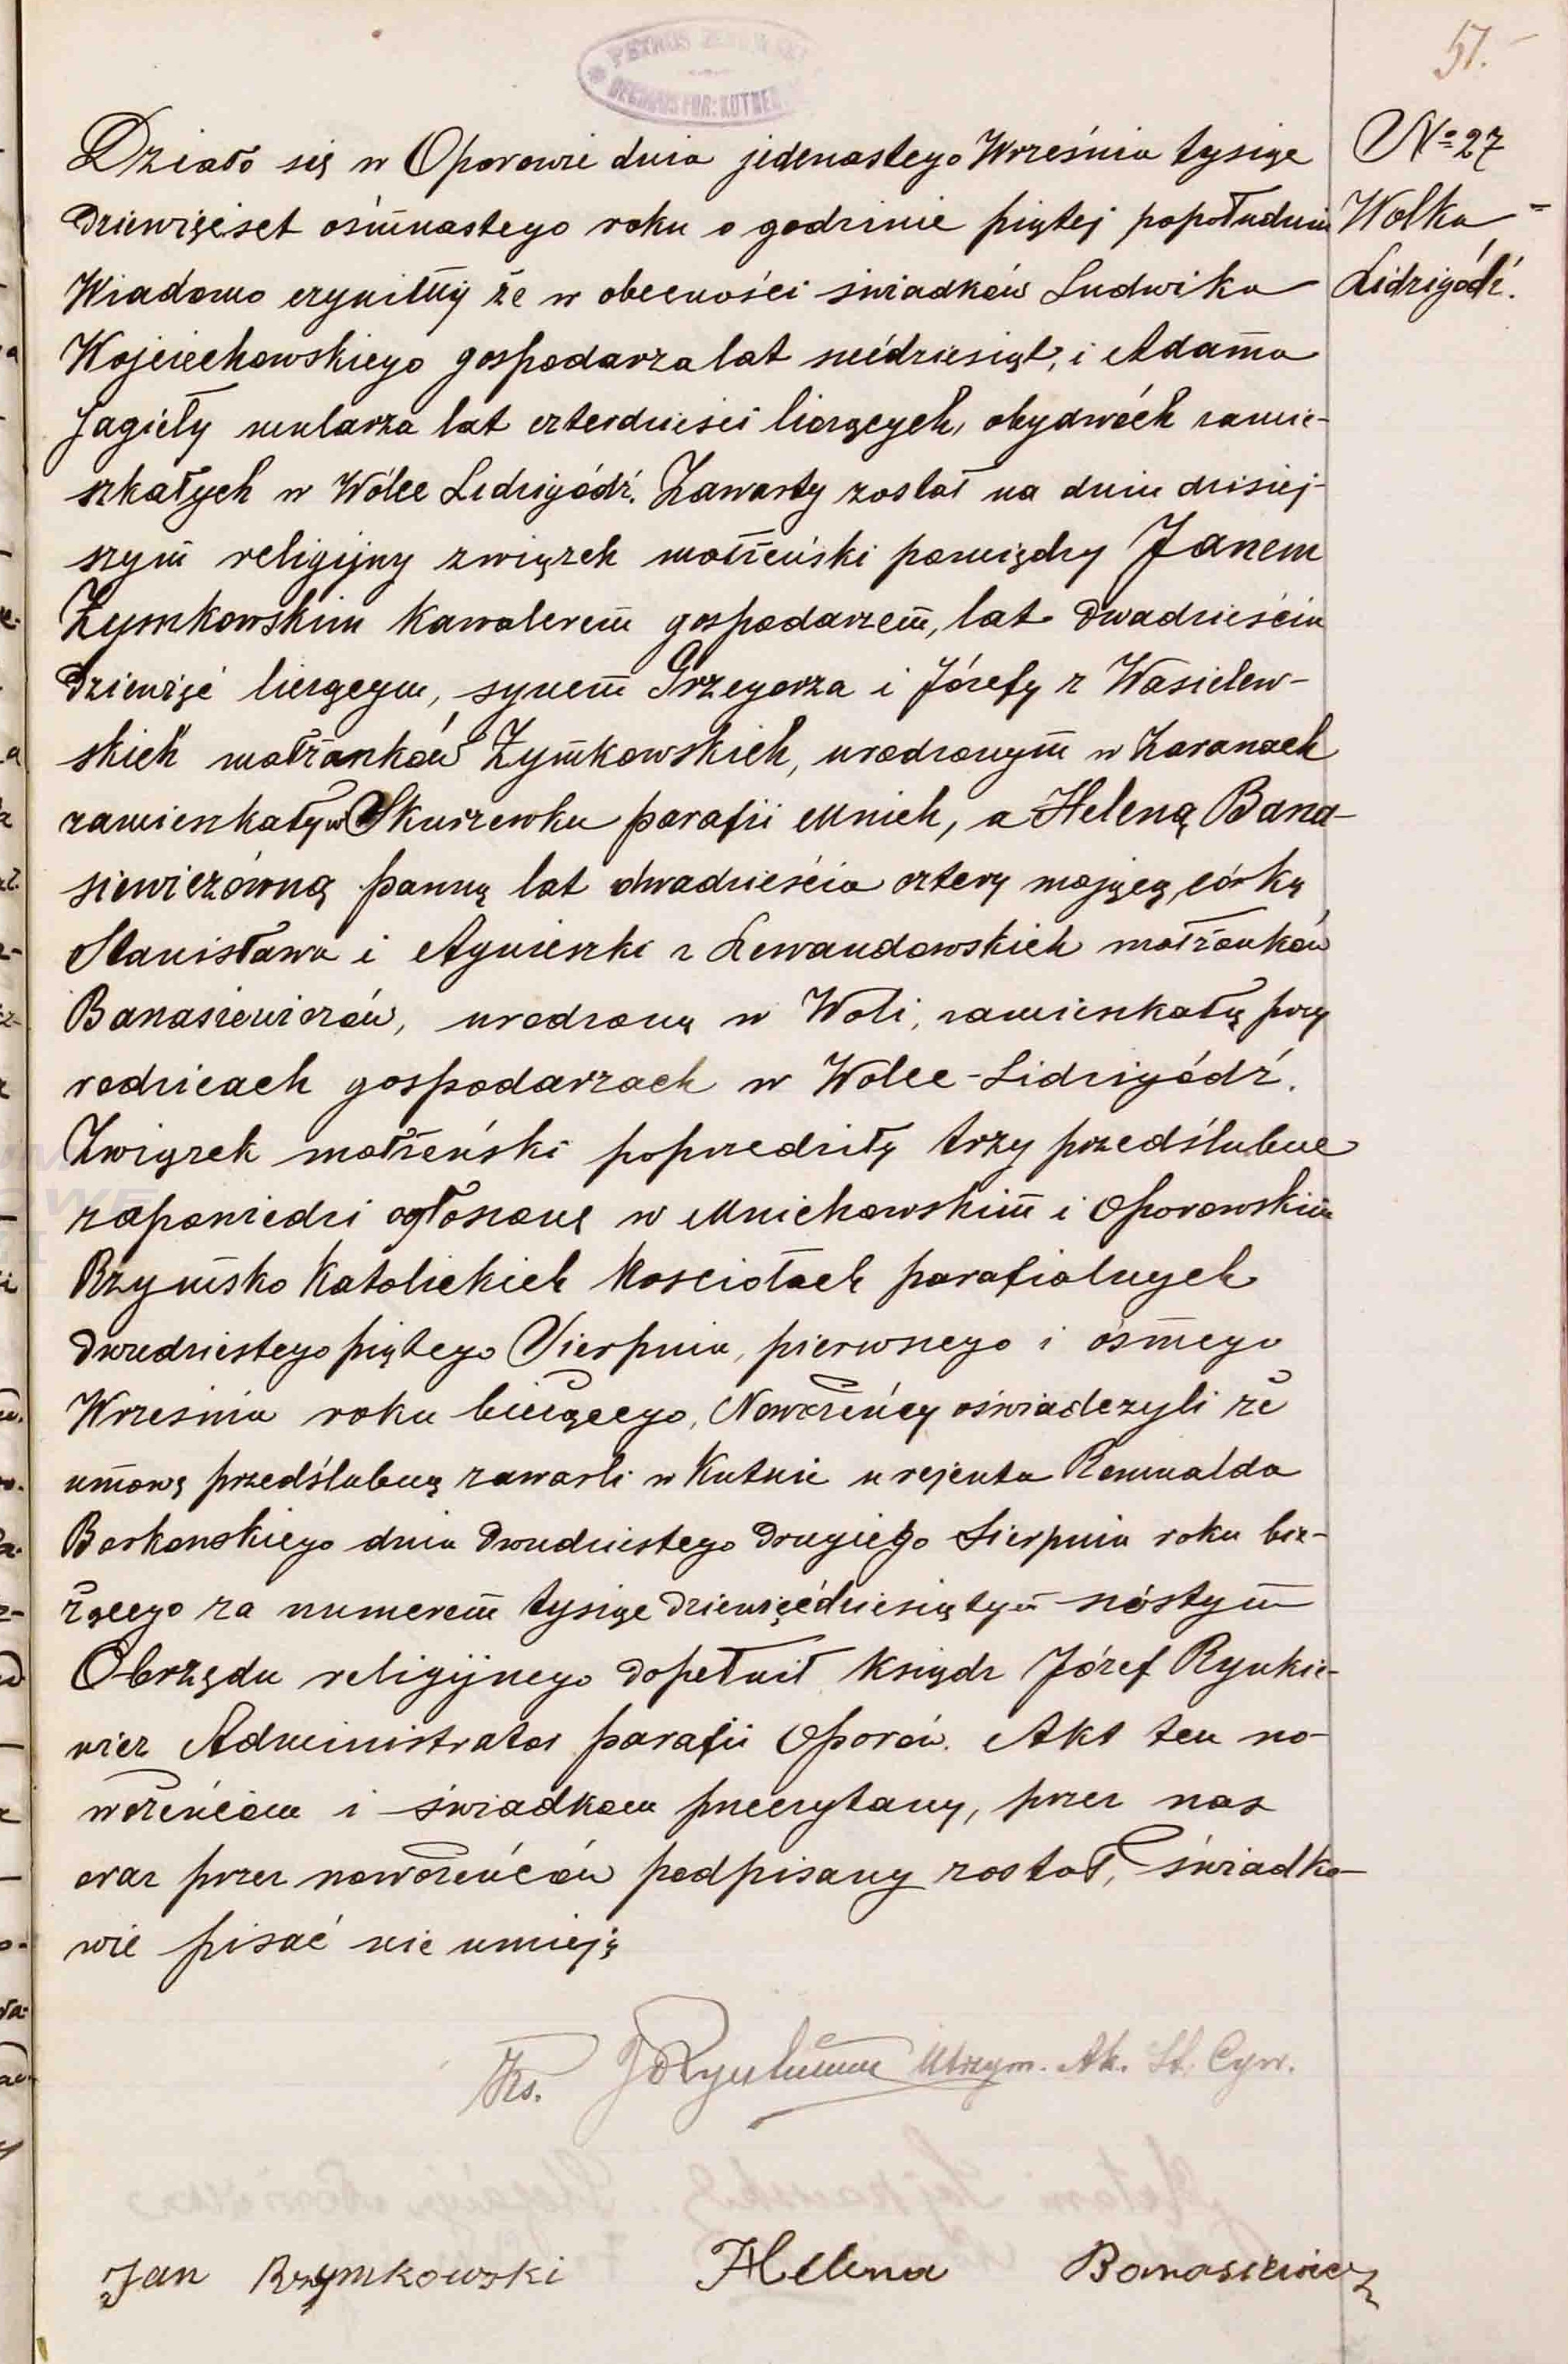 51.
PETRUS
DECANUS FOR: KUTNEN
№ 27
Wolka-
Lidzigódź.
Działo się w Oporowie dnia jedenastego Września tysiąc
dziewięćset ośmnastego roku o godzinie piątej popołudniu
Wiadomo czyniḿy że w obecności świadków Ludwika
Wojciechowskiego gospodarza lat sześdziesiąt, i Adama
Jagieły mularza lat czterdzieści liczących, obydwóch zamie-
szkałych w Wólce Lidzigódź. Zawarty został na dniu dzisiej-
szym religijny związek małżeński pomiędzy Janem
Zymkowskim Kawalerem gospodarzem, lat dwadzieścia
dziewięć liczącym, synem Grzegorza i Józefy z Wasielew-
skich małżonków Zymkowskich, urodzonym w Zaranach
zamieszkały w Skurzewku parafii Mnich, a Heleną Bana-
siewiczówną panną lat dwadzieścia cztery mającą, córką
Stanisława i Agnieszki z Lewandowskich małżonków
Banasiewiczów, urodzoną w Woli, zamieszkałą przy
rodzicach gospodarzach w Wolce-Lidzigódź.
Związek małżeński poprzedziły trzy przedślubne
zapowiedzi ogłoszone w Mnichowskim i Oporowskim
Rzymsko Katolickich Kościołach parafialnych
dwudziestego piątego Sierpnia, pierwszego i ósmego
Września roku bieżącego, Nowożeńcy oświadczyli że
umowę przedślubną zawarli w Kutnie u rejenta Romualda
Borkowskiego dnia dwudziestego drugiego Sierpnia roku bie-
żącego za numerem tysiąc dziewięćdziesiątym szóstym
Obrzędu religijnego dopełnił ksiądz Józef Rynkie-
wicz Administrator parafii Oporów. Akt ten no-
wożeńcom i świadkom przeczytany, przez nas
oraz przez nowożeńców podpisany został, świadko-
wie pisać nie umieją
Ks. J Rynkiewicz Utrzym. Ak. St. Cyw.
Jan Rzymkowski Helena Banasiewicz